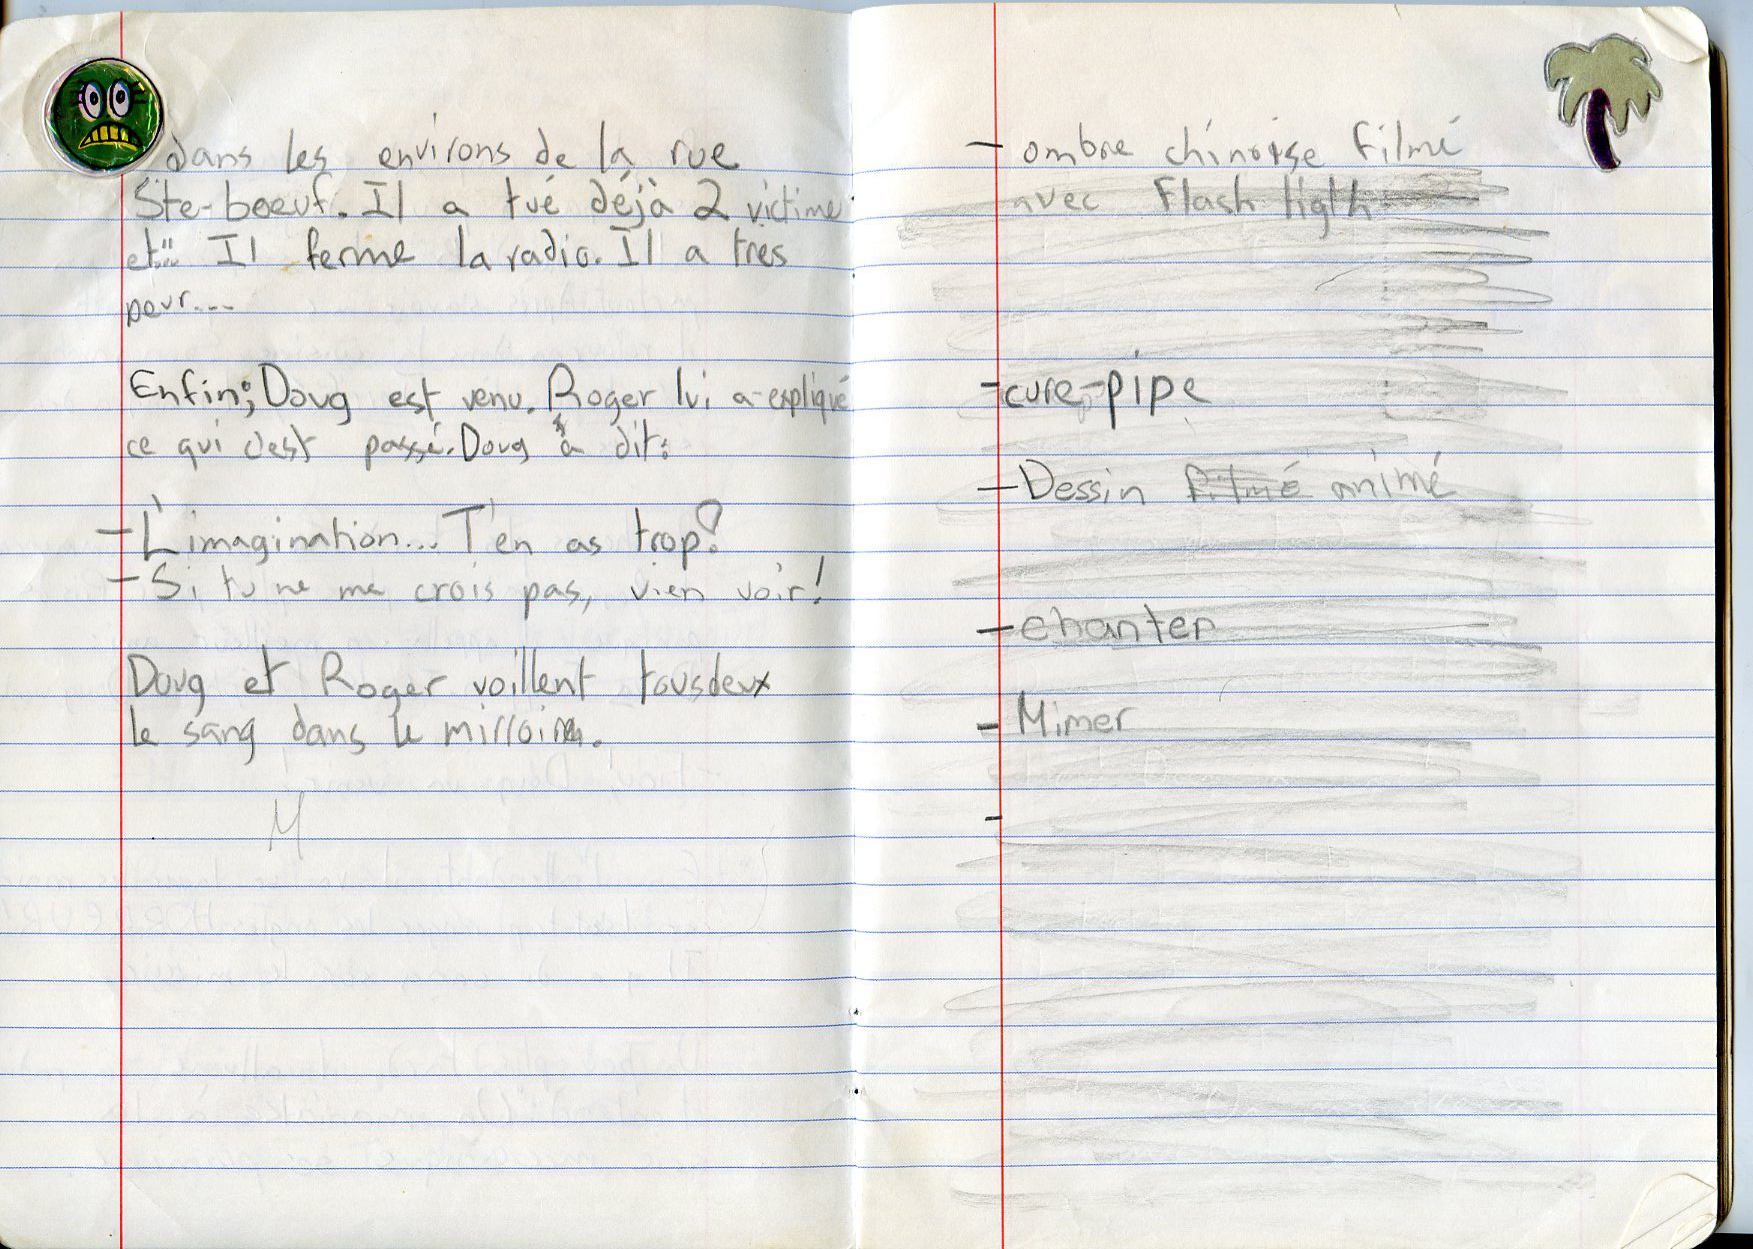 dans les environs de la rue
Ste-boeuf. Il a tué déjà 2 victime
et..." Il ferme la radio. Il a très
peur...
Enfin; Doug est venu. Roger lui a expliqué
ce qui c'est passé. Doug a dit:
- L'imagination... T'en as trop!
- Si tu ne me crois pas, vien voir!
Doug et Roger voillent tousdeux
le sang dans le mirroire.
M
- ombre chinoise filmé
avec Flash ligth
- cure-pipe
- Dessin filmé animé
- chanter
- Mimer
-